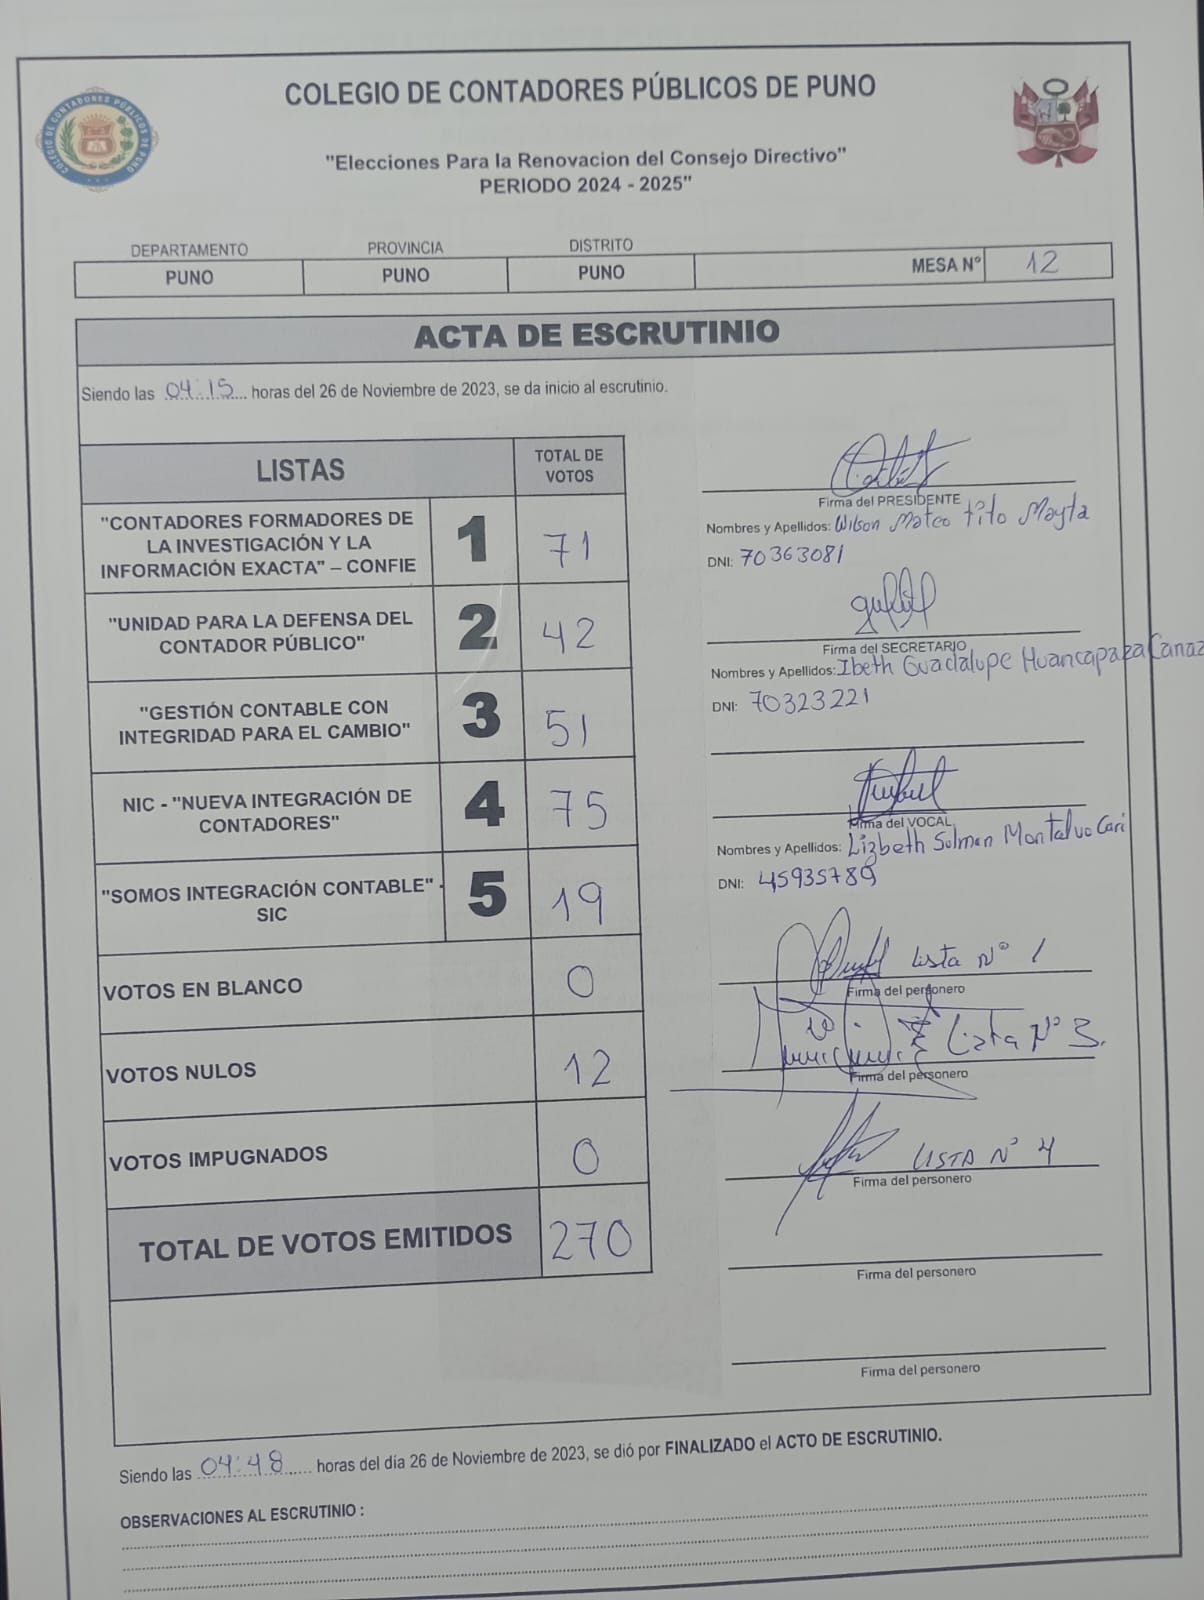 COLEGIO DE CONTADORES PÚBLICOS DE PUNO
COLEGIO DE CONTADORES PÚBLICOS DE PUNO
"Elecciones Para la Renovacion del Consejo Directivo"
PERIODO 2024 - 2025"
DEPARTAMENTO PROVINCIA DISTRITO
PUNO PUNO PUNO MESA N° 12
ACTA DE ESCRUTINIO
Siendo las 04:15 horas del 26 de Noviembre de 2023, se da inicio al escrutinio.
LISTAS TOTAL DE VOTOS
"CONTADORES FORMADORES DE
LA INVESTIGACIÓN Y LA
INFORMACIÓN EXACTA" – CONFIE
1 71
"UNIDAD PARA LA DEFENSA DEL
CONTADOR PÚBLICO"
2 42
"GESTIÓN CONTABLE CON
INTEGRIDAD PARA EL CAMBIO"
3 51
NIC - "NUEVA INTEGRACIÓN DE
CONTADORES"
4 75
"SOMOS INTEGRACIÓN CONTABLE" -
SIC
5 19
VOTOS EN BLANCO 0
VOTOS NULOS 12
VOTOS IMPUGNADOS 0
TOTAL DE VOTOS EMITIDOS 270
Firma del PRESIDENTE
Nombres y Apellidos: Wilson Mateo Tito Mayta
DNI: 70363081
Firma del SECRETARIO
Nombres y Apellidos: Ibeth Guadalupe Huancapaza Canaz
DNI: 70323221
Firma del VOCAL
Nombres y Apellidos: Lizbeth Solman Montalvo Cari
DNI: 45935789
Lista N° 1
Firma del personero
Lista N° 3.
Firma del personero
LISTA N° 4
Firma del personero
Firma del personero
Firma del personero
Siendo las 04:48 horas del día 26 de Noviembre de 2023, se dió por FINALIZADO el ACTO DE ESCRUTINIO.
OBSERVACIONES AL ESCRUTINIO :